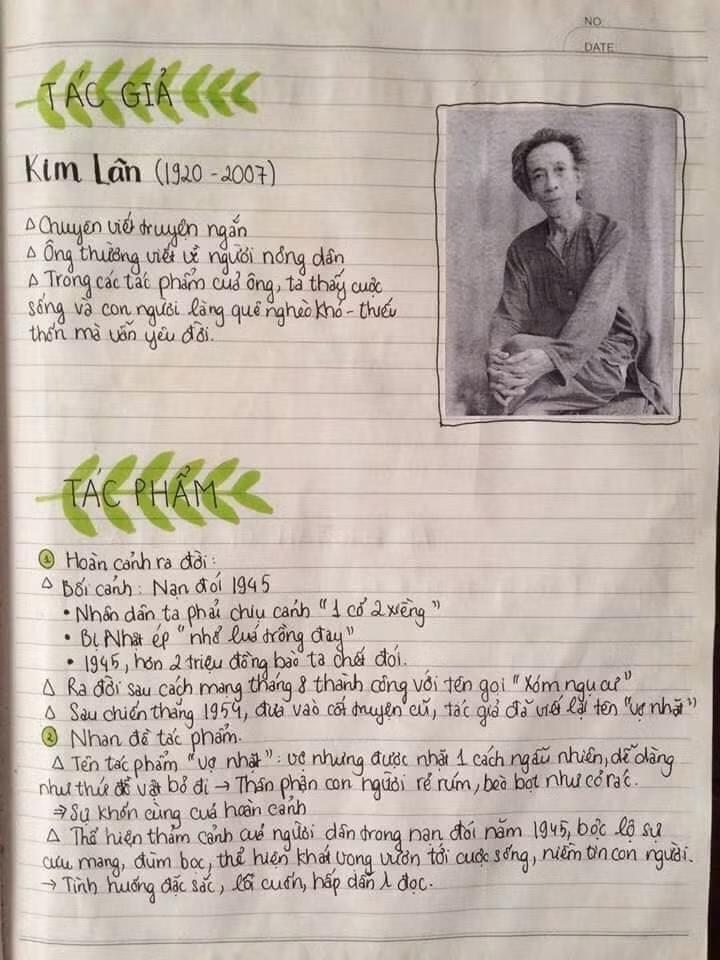 NO.
DATE
TÁC GIẢ
Kim Lân (1920 - 2007)
Δ Chuyên viết truyện ngắn
Δ Ông thường viết về người nông dân
Δ Trong các tác phẩm của ông, ta thấy cuộc
sống và con người làng quê nghèo khó - thiếu
thốn mà vẫn yêu đời.
TÁC PHẨM
① Hoàn cảnh ra đời:
Δ Bối cảnh: Nạn đói 1945
• Nhân dân ta phải chịu cảnh "1 cổ 2 xiềng"
• Bị Nhật ép "nhổ lúa trồng đay"
• 1945, hơn 2 triệu đồng bào ta chết đói.
Δ Ra đời sau cách mạng tháng 8 thành công với tên gọi "Xóm ngụ cư"
Δ Sau chiến thắng 1954, dựa vào cốt truyện cũ, tác giả đã viết lại tên "vợ nhặt"
② Nhan đề tác phẩm.
Δ Tên tác phẩm "vợ nhặt": vợ nhưng được nhặt 1 cách ngẫu nhiên, dễ dàng
như thứ đồ vật bỏ đi → Thân phận con người rẻ rúm, bèo bọt như cỏ rác.
⇒ Sự khốn cùng của hoàn cảnh
Δ Thể hiện thảm cảnh của người dân trong nạn đói năm 1945, bộc lộ sự
cưu mang, đùm bọc, thể hiện khát vọng vươn tới cuộc sống, niềm tin con người.
→ Tình huống đặc sắc, lôi cuốn, hấp dẫn λ đọc.